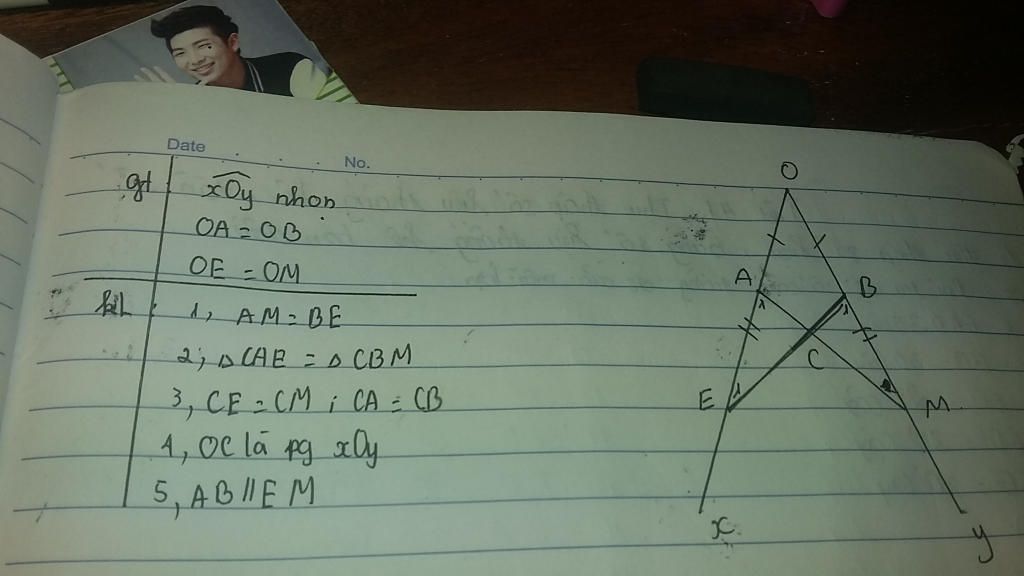 Date
No.
gt xOy nhọn
OA = OB
OE = OM
kL 1, AM = BE
2, △CAE = △CBM
3, CE = CM ; CA = CB
4, OC là pg xOy
5, AB // EM
O
A
B
1
1
C
E
1
M
x
y